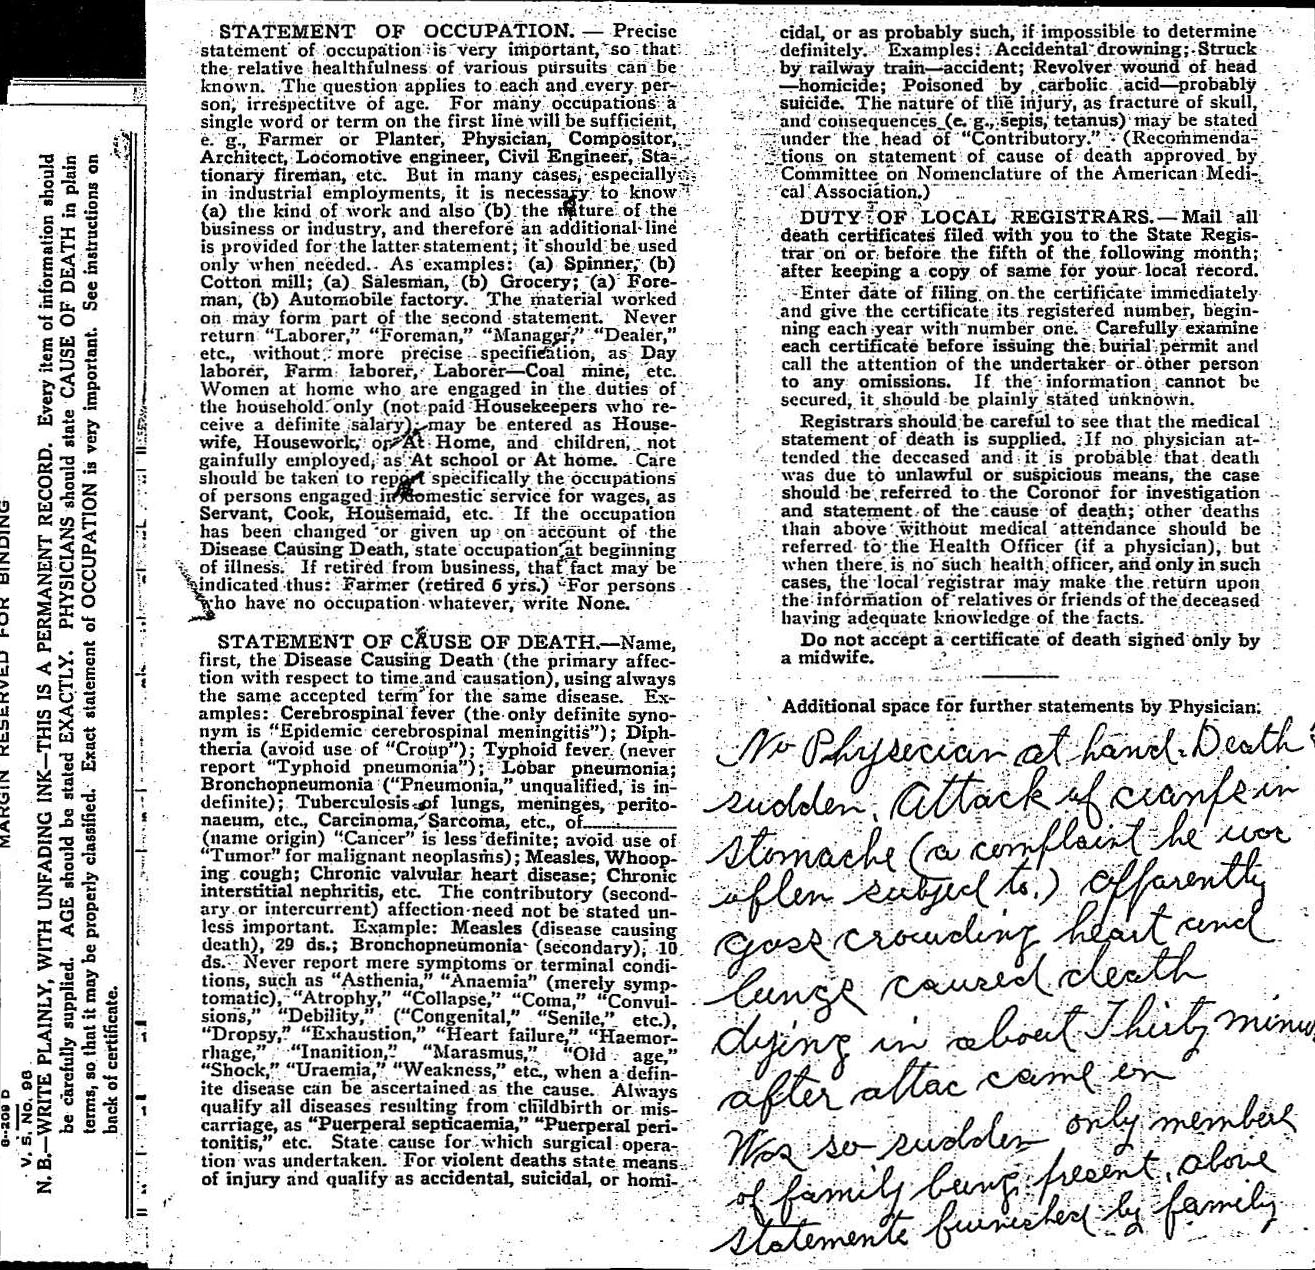 MARGIN RESERVED FOR BINDING
N. B.—WRITE PLAINLY, WITH UNFADING INK—THIS IS A PERMANENT RECORD. Every item of information should
be carefully supplied. AGE should be stated EXACTLY. PHYSICIANS should state CAUSE OF DEATH in plain
terms, so that it may be properly classified. Exact statement of OCCUPATION is very important. See instructions on
back of certificate.
V. S. No. 98
6-209 D
STATEMENT OF OCCUPATION. — Precise
statement of occupation is very important, so that
the relative healthfulness of various pursuits can be
known. The question applies to each and every per-
son, irrespectitve of age. For many occupations a
single word or term on the first line will be sufficient,
e. g., Farmer or Planter, Physician, Compositor,
Architect, Locomotive engineer, Civil Engineer, Sta-
tionary fireman, etc. But in many cases, especially
in industrial employments, it is necessary to know
(a) the kind of work and also (b) the nature of the
business or industry, and therefore an additional line
is provided for the latter statement; it should be used
only when needed. As examples: (a) Spinner, (b)
Cotton mill; (a) Salesman, (b) Grocery; (a) Fore-
man, (b) Automobile factory. The material worked
on may form part of the second statement. Never
return "Laborer," "Foreman," "Manager," "Dealer,"
etc., without more precise specification, as Day
laborer, Farm laborer, Laborer—Coal mine, etc.
Women at home who are engaged in the duties of
the household only (not paid Housekeepers who re-
ceive a definite salary) may be entered as House-
wife, Housework, or At Home, and children, not
gainfully employed, as At school or At home. Care
should be taken to report specifically the occupations
of persons engaged in domestic service for wages, as
Servant, Cook, Housemaid, etc. If the occupation
has been changed or given up on account of the
Disease Causing Death, state occupation at beginning
of illness. If retired from business, that fact may be
indicated thus: Farmer (retired 6 yrs.) For persons
who have no occupation whatever, write None.
STATEMENT OF CAUSE OF DEATH.—Name,
first, the Disease Causing Death (the primary affec-
tion with respect to time and causation), using always
the same accepted term for the same disease. Ex-
amples: Cerebrospinal fever (the only definite syno-
nym is "Epidemic cerebrospinal meningitis"); Diph-
theria (avoid use of "Croup"); Typhoid fever (never
report "Typhoid pneumonia"); Lobar pneumonia;
Bronchopneumonia ("Pneumonia," unqualified, is in-
definite); Tuberculosis of lungs, meninges, perito-
naeum, etc., Carcinoma, Sarcoma, etc., of............
(name origin) "Cancer" is less definite; avoid use of
"Tumor" for malignant neoplasms); Measles, Whoop-
ing cough; Chronic valvular heart disease; Chronic
interstitial nephritis, etc. The contributory (second-
ary or intercurrent) affection need not be stated un-
less important. Example: Measles (disease causing
death), 29 ds.; Bronchopneumonia (secondary), 10
ds. Never report mere symptoms or terminal condi-
tions, such as "Asthenia," "Anaemia" (merely symp-
tomatic), "Atrophy," "Collapse," "Coma," "Convul-
sions," "Debility," ("Congenital," "Senile," etc.),
"Dropsy," "Exhaustion," "Heart failure," "Haemor-
rhage," "Inanition," "Marasmus," "Old age,"
"Shock," "Uraemia," "Weakness," etc., when a defin-
ite disease can be ascertained as the cause. Always
qualify all diseases resulting from childbirth or mis-
carriage, as "Puerperal septicaemia," "Puerperal peri-
tonitis," etc. State cause for which surgical opera-
tion was undertaken. For violent deaths state means
of injury and qualify as accidental, suicidal, or homi-
cidal, or as probably such, if impossible to determine
definitely. Examples: Accidental drowning; Struck
by railway train—accident; Revolver wound of head
—homicide; Poisoned by carbolic acid—probably
suicide. The nature of the injury, as fracture of skull,
and consequences (e. g., sepis, tetanus) may be stated
under the head of "Contributory." (Recommenda-
tions on statement of cause of death approved by
Committee on Nomenclature of the American Medi-
cal Association.)
DUTY OF LOCAL REGISTRARS.—Mail all
death certificates filed with you to the State Regis-
trar on or before the fifth of the following month;
after keeping a copy of same for your local record.
Enter date of filing on the certificate immediately
and give the certificate its registered number, begin-
ning each year with number one. Carefully examine
each certificate before issuing the burial permit and
call the attention of the undertaker or other person
to any omissions. If the information cannot be
secured, it should be plainly stated unknown.
Registrars should be careful to see that the medical
statement of death is supplied. If no physician at-
tended the deceased and it is probable that death
was due to unlawful or suspicious means, the case
should be referred to the Coronor for investigation
and statement of the cause of death; other deaths
than above without medical attendance should be
referred to the Health Officer (if a physician), but
when there is no such health officer, and only in such
cases, the local registrar may make the return upon
the information of relatives or friends of the deceased
having adequate knowledge of the facts.
Do not accept a certificate of death signed only by
a midwife.
Additional space for further statements by Physician:
No Physecian at hand. Death
sudden. Attack of cramps in
stomache (a complaint he was
often subject to.) apparently
gass crowding heart and
lungs caused death
dying in about Thirty minu
after attac came on
Was so sudden only members
of family being present, above
statements furnished by family